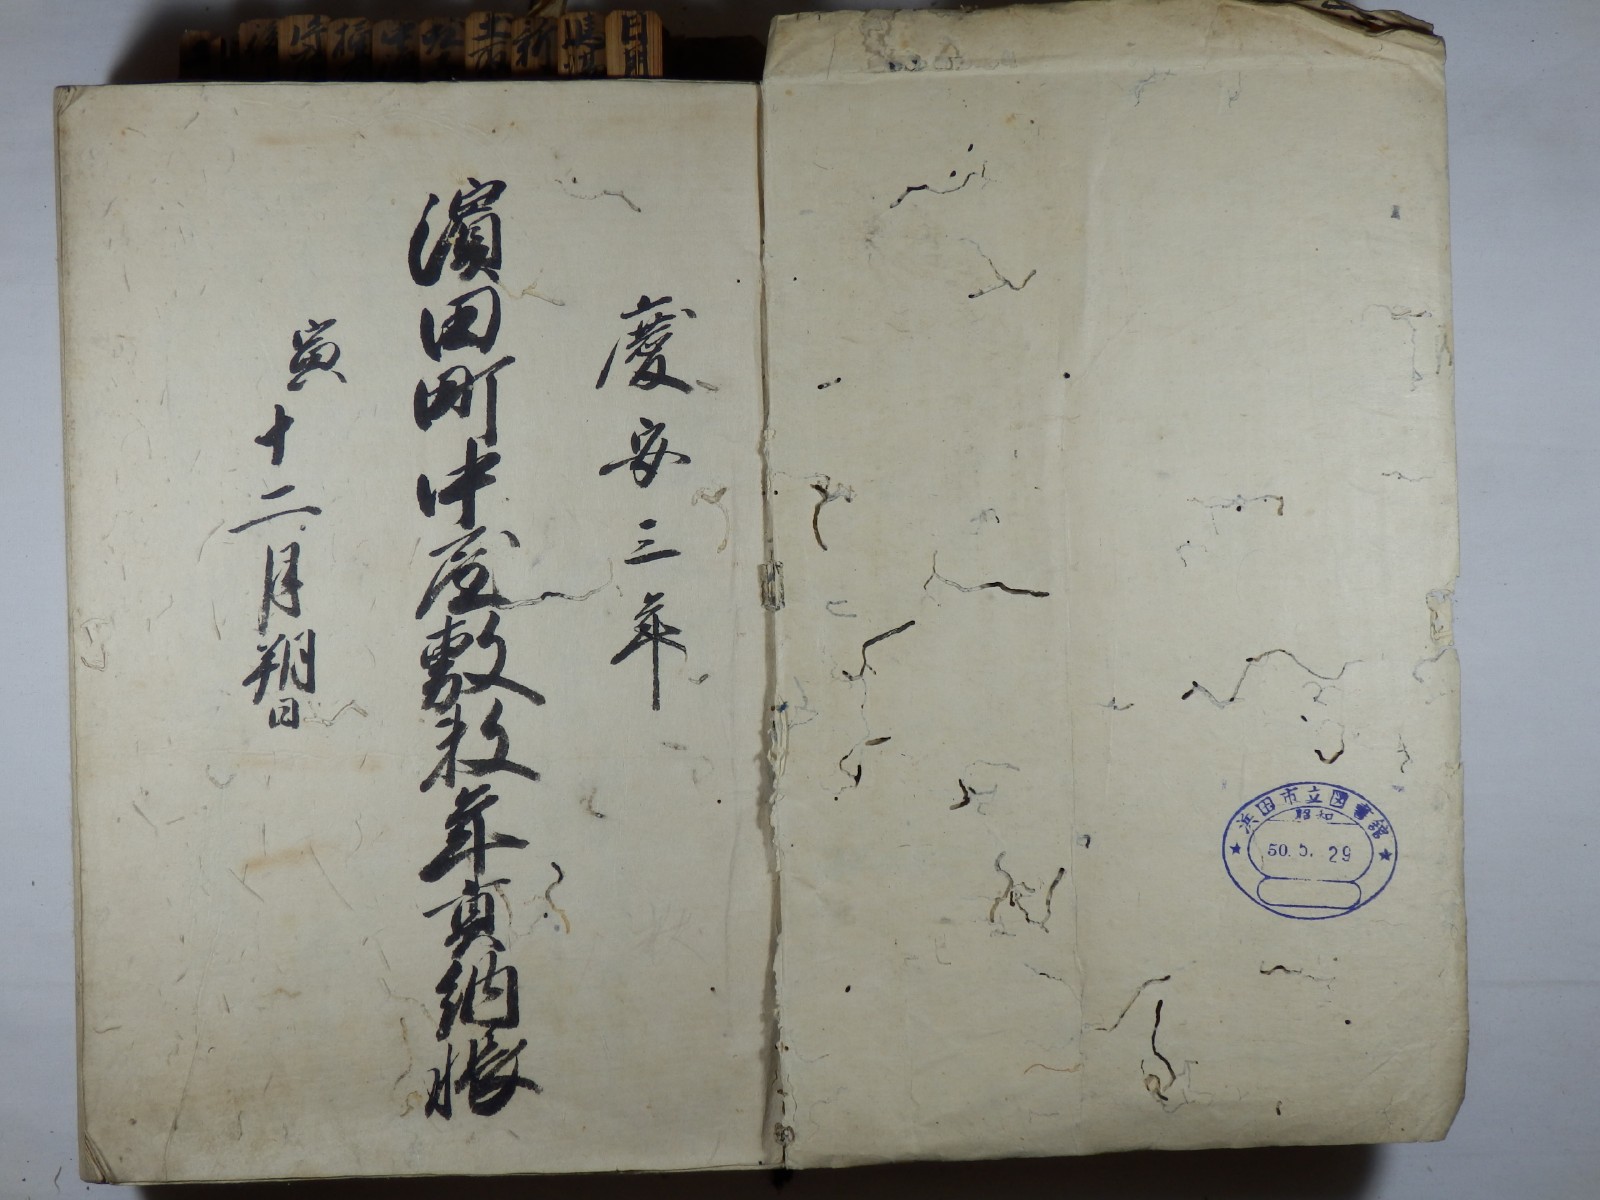 慶安三年
濱田町中屋敷救年貢納帳
寅十二月朔日
浜田市立図書館
昭和
50. 5. 29